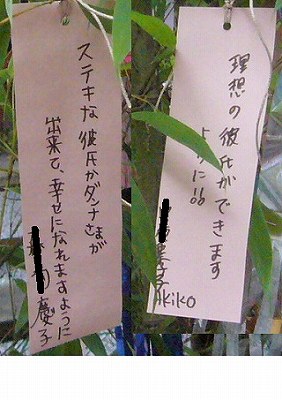 ステキな彼氏かダンナさまが
出来て、幸せになれますように
慶子
理想の彼氏ができます
ように!!
子 Akiko